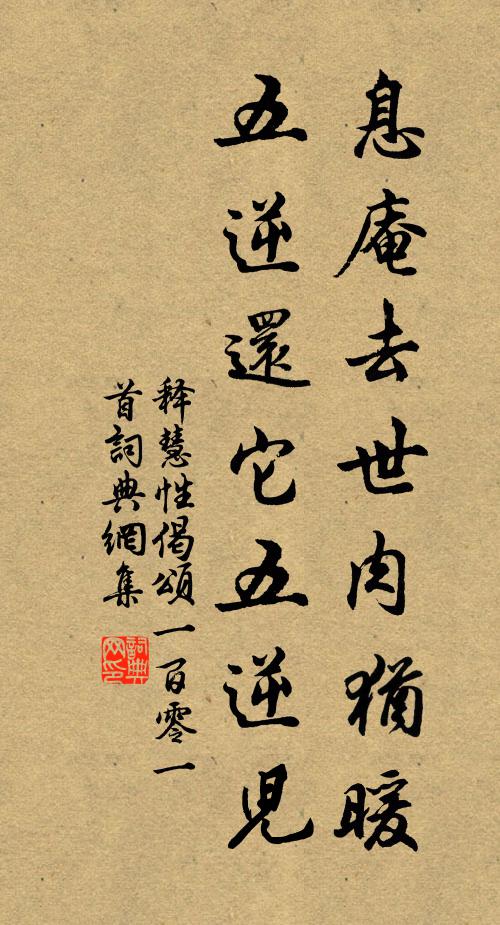 息庵去世肉猶暖
五逆還它五逆兒
释慧性偈頌一百零一
首詞典網集
詞典网印